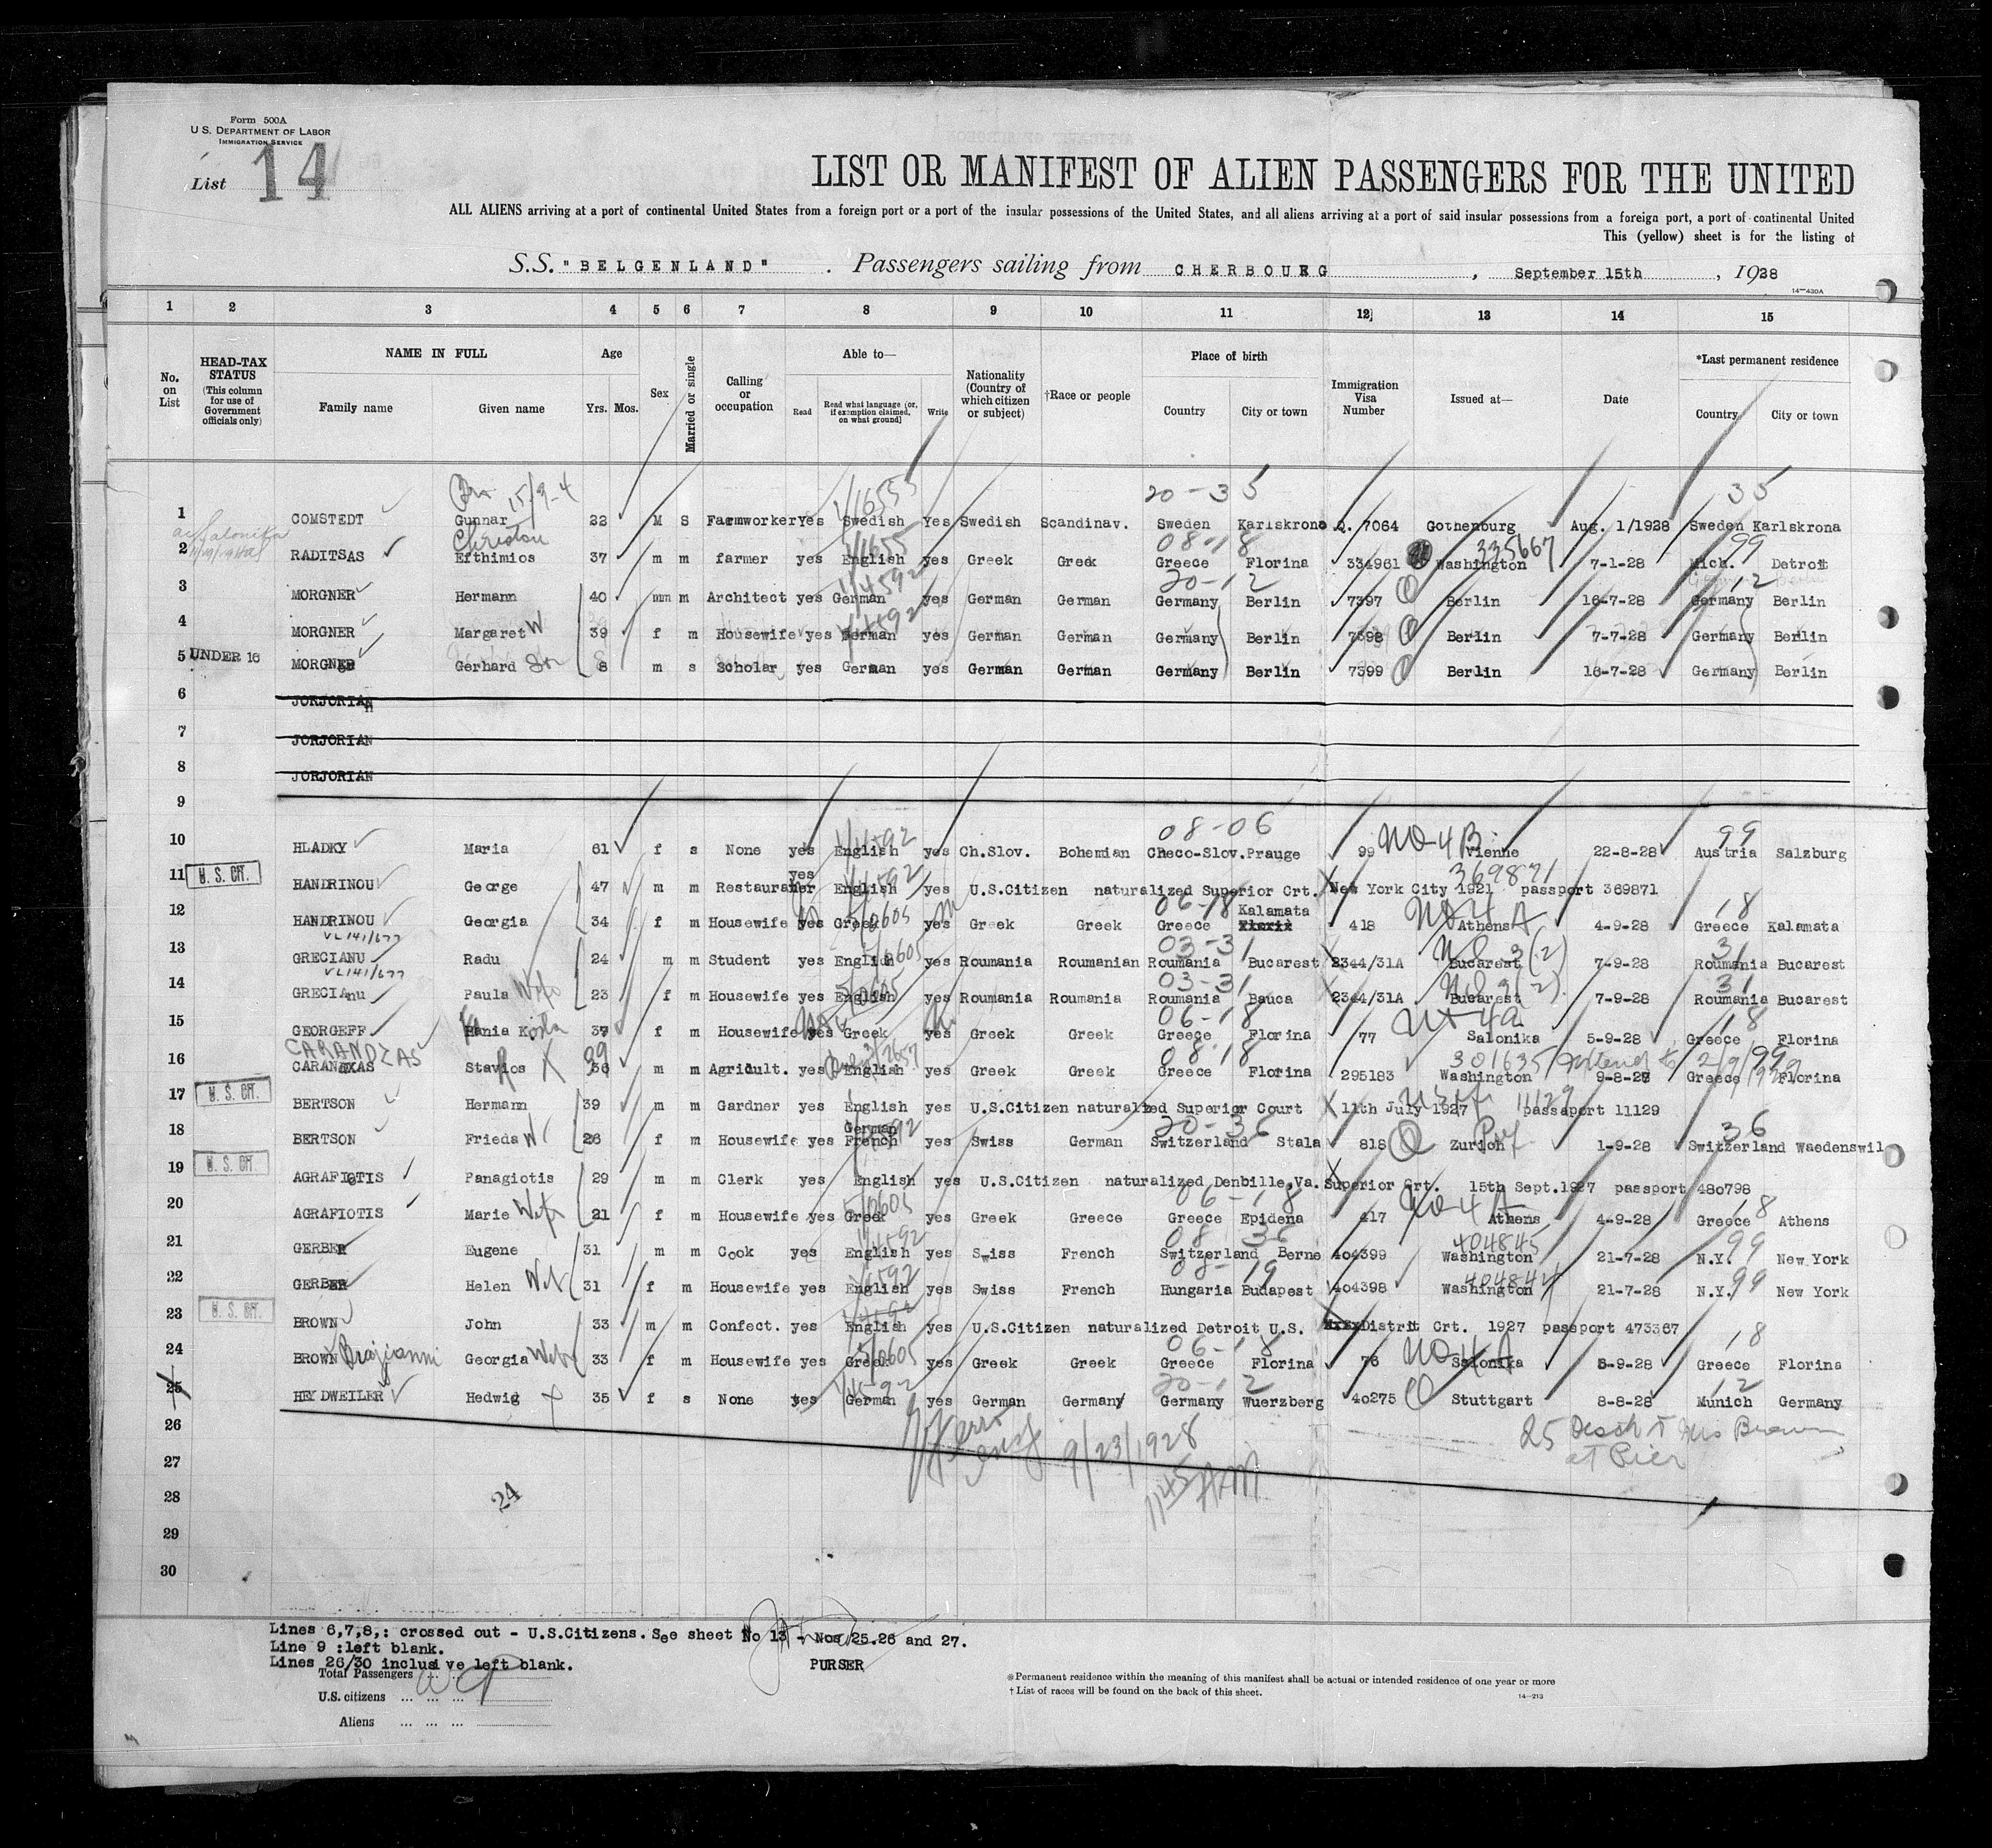 Form 500A
U. S. DEPARTMENT OF LABOR
IMMIGRATION SERVICE
List 14
LIST OR MANIFEST OF ALIEN PASSENGERS FOR THE UNITED
ALL ALIENS arriving at a port of continental United States from a foreign port or a port of the insular possessions of the United States, and all aliens arriving at a port of said insular possessions from a foreign port, a port of continental United
This (yellow) sheet is for the listing of
S.S. "BELGENLAND". Passengers sailing from CHERBOURG, September 15th, 1928
14—430A
1 2 3 4 5 6 7 8 9 10 11 12 13 14 15
No. on List
HEAD-TAX STATUS (This column for use of Government officials only)
NAME IN FULL
Family name Given name
Age
Yrs. Mos.
Sex
Married or single
Calling or occupation
Able to—
Read Read what language (or, if exemption claimed, on what ground) Write
Nationality (Country of which citizen or subject)
†Race or people
Place of birth
Country City or town
Immigration Visa Number
Issued at—
Date
*Last permanent residence
Country City or town
15/9-4 1/16555 20-35 35
1 COMSTEDT Gunnar 22 M S Farmworker Yes Swedish Yes Swedish Scandinav. Sweden Karlskrona Q. 7064 Gothenburg Aug. 1/1928 Sweden Karlskrona
Christou 1/1655 08-18 335667 99
2 RADITSAS Efthimios 37 m m farmer yes English yes Greek Greek Greece Florina 334961 Washington 7-1-28 Mich. Detroit
1/14592 20-12 12
3 MORGNER Hermann 40 m m Architect yes German yes German German Germany Berlin 7397 Berlin 16-7-28 Germany Berlin
4 MORGNER Margaret W 39 f m Housewife yes German yes German German Germany Berlin 7398 Berlin 7-7-28 Germany Berlin
5 UNDER 16 MORGNER Gerhard Son 8 m s Scholar yes German yes German German Germany Berlin 7399 Berlin 16-7-28 Germany Berlin
6 JORJORIAN
7 JORJORIAN
8 JORJORIAN
9
1/14592 08-06 NO 4 B 99
10 HLADKY Maria 61 f s None yes English yes Ch.Slov. Bohemian Checo-Slov. Prauge 99 Vienne 22-8-28 Austria Salzburg
369871
11 U.S. CIT. HANDRINOU George 47 m m Restauraner yes English yes U.S.Citizen naturalized Superior Crt. New York City 1921 passport 369871
06-18 Kalamata NO 4 A 18
12 HANDRINOU Georgia 34 f m Housewife yes Greek yes Greek Greek Greece 418 Athens 4-9-28 Greece Kalamata
VL 141/677 03-31 31
13 GRECIANU Radu 24 m m Student yes English yes Roumania Roumanian Roumania Bucarest 2344/31A Bucarest 7-9-28 Roumania Bucarest
VL 141/677 03-31 31
14 GRECIAnu Paula Wife 23 f m Housewife yes English yes Roumania Roumania Roumania Bauca 2344/31A Bucarest 7-9-28 Roumania Bucarest
06-18 18
15 GEORGEFF 37 f m Housewife yes Greek yes Greek Greek Greece Florina 77 Salonika 5-9-28 Greece Florina
CARANDZAS 08-18 301635 99
16 Stavros m m Agricult. yes English yes Greek Greek Greece Florina 295183 Washington 9-8-28 Greece Florina
17 U.S. CIT. BERTSON Hermann 39 m m Gardner yes English yes U.S.Citizen naturalized Superior Court 11th July 1927 passaport 11129
German 20-36 36
18 BERTSON Frieda W 26 f m Housewife yes French yes Swiss German Switzerland Stala 818 Zurich 1-9-28 Switzerland Waedenswil
19 U.S. CIT. AGRAFIOTIS Panagiotis 29 m m Clerk yes English yes U.S.Citizen naturalized Denbille,Va. Superior Crt. 15th Sept.1927 passport 480798
5/0605 06-18 NO 4 A 18
20 AGRAFIOTIS Marie Wife 21 f m Housewife yes Greek yes Greek Greece Greece Epidena 417 Athens 4-9-28 Greece Athens
1/14592 08 36 404845 99
21 GERBER Eugene 31 m m Cook yes English yes Swiss French Switzerland Berne 404399 Washington 21-7-28 N.Y. New York
19 404844 99
22 GERBER Helen Wife 31 f m Housewife yes English yes Swiss French Hungaria Budapest 404398 Washington 21-7-28 N.Y. New York
23 U.S. CIT. BROWN John 33 m m Confect. yes English yes U.S.Citizen naturalized Detroit U.S. District Crt. 1927 passport 473367
06-18 NO 4 A 18
24 BROWN Georgia Wife 33 f m Housewife yes Greek yes Greek Greek Greece Florina 76 Salonika 5-9-28 Greece Florina
1/14592 20-12 12
25 HEYDWEILER Hedwig 35 f s None yes German yes German Germany Germany Wuerzberg 40275 Stuttgart 8-8-28 Munich Germany
26
27 9/23/1928 at Pier
28 24 1145 AM
29
30
Lines 6,7,8,: crossed out - U.S.Citizens. See sheet No 13 - Nos 25.26 and 27.
Line 9 :left blank.
Lines 26/30 inclusive left blank.
PURSER
Total Passengers
U.S. citizens
Aliens
*Permanent residence within the meaning of this manifest shall be actual or intended residence of one year or more
†List of races will be found on the back of this sheet.
14—213